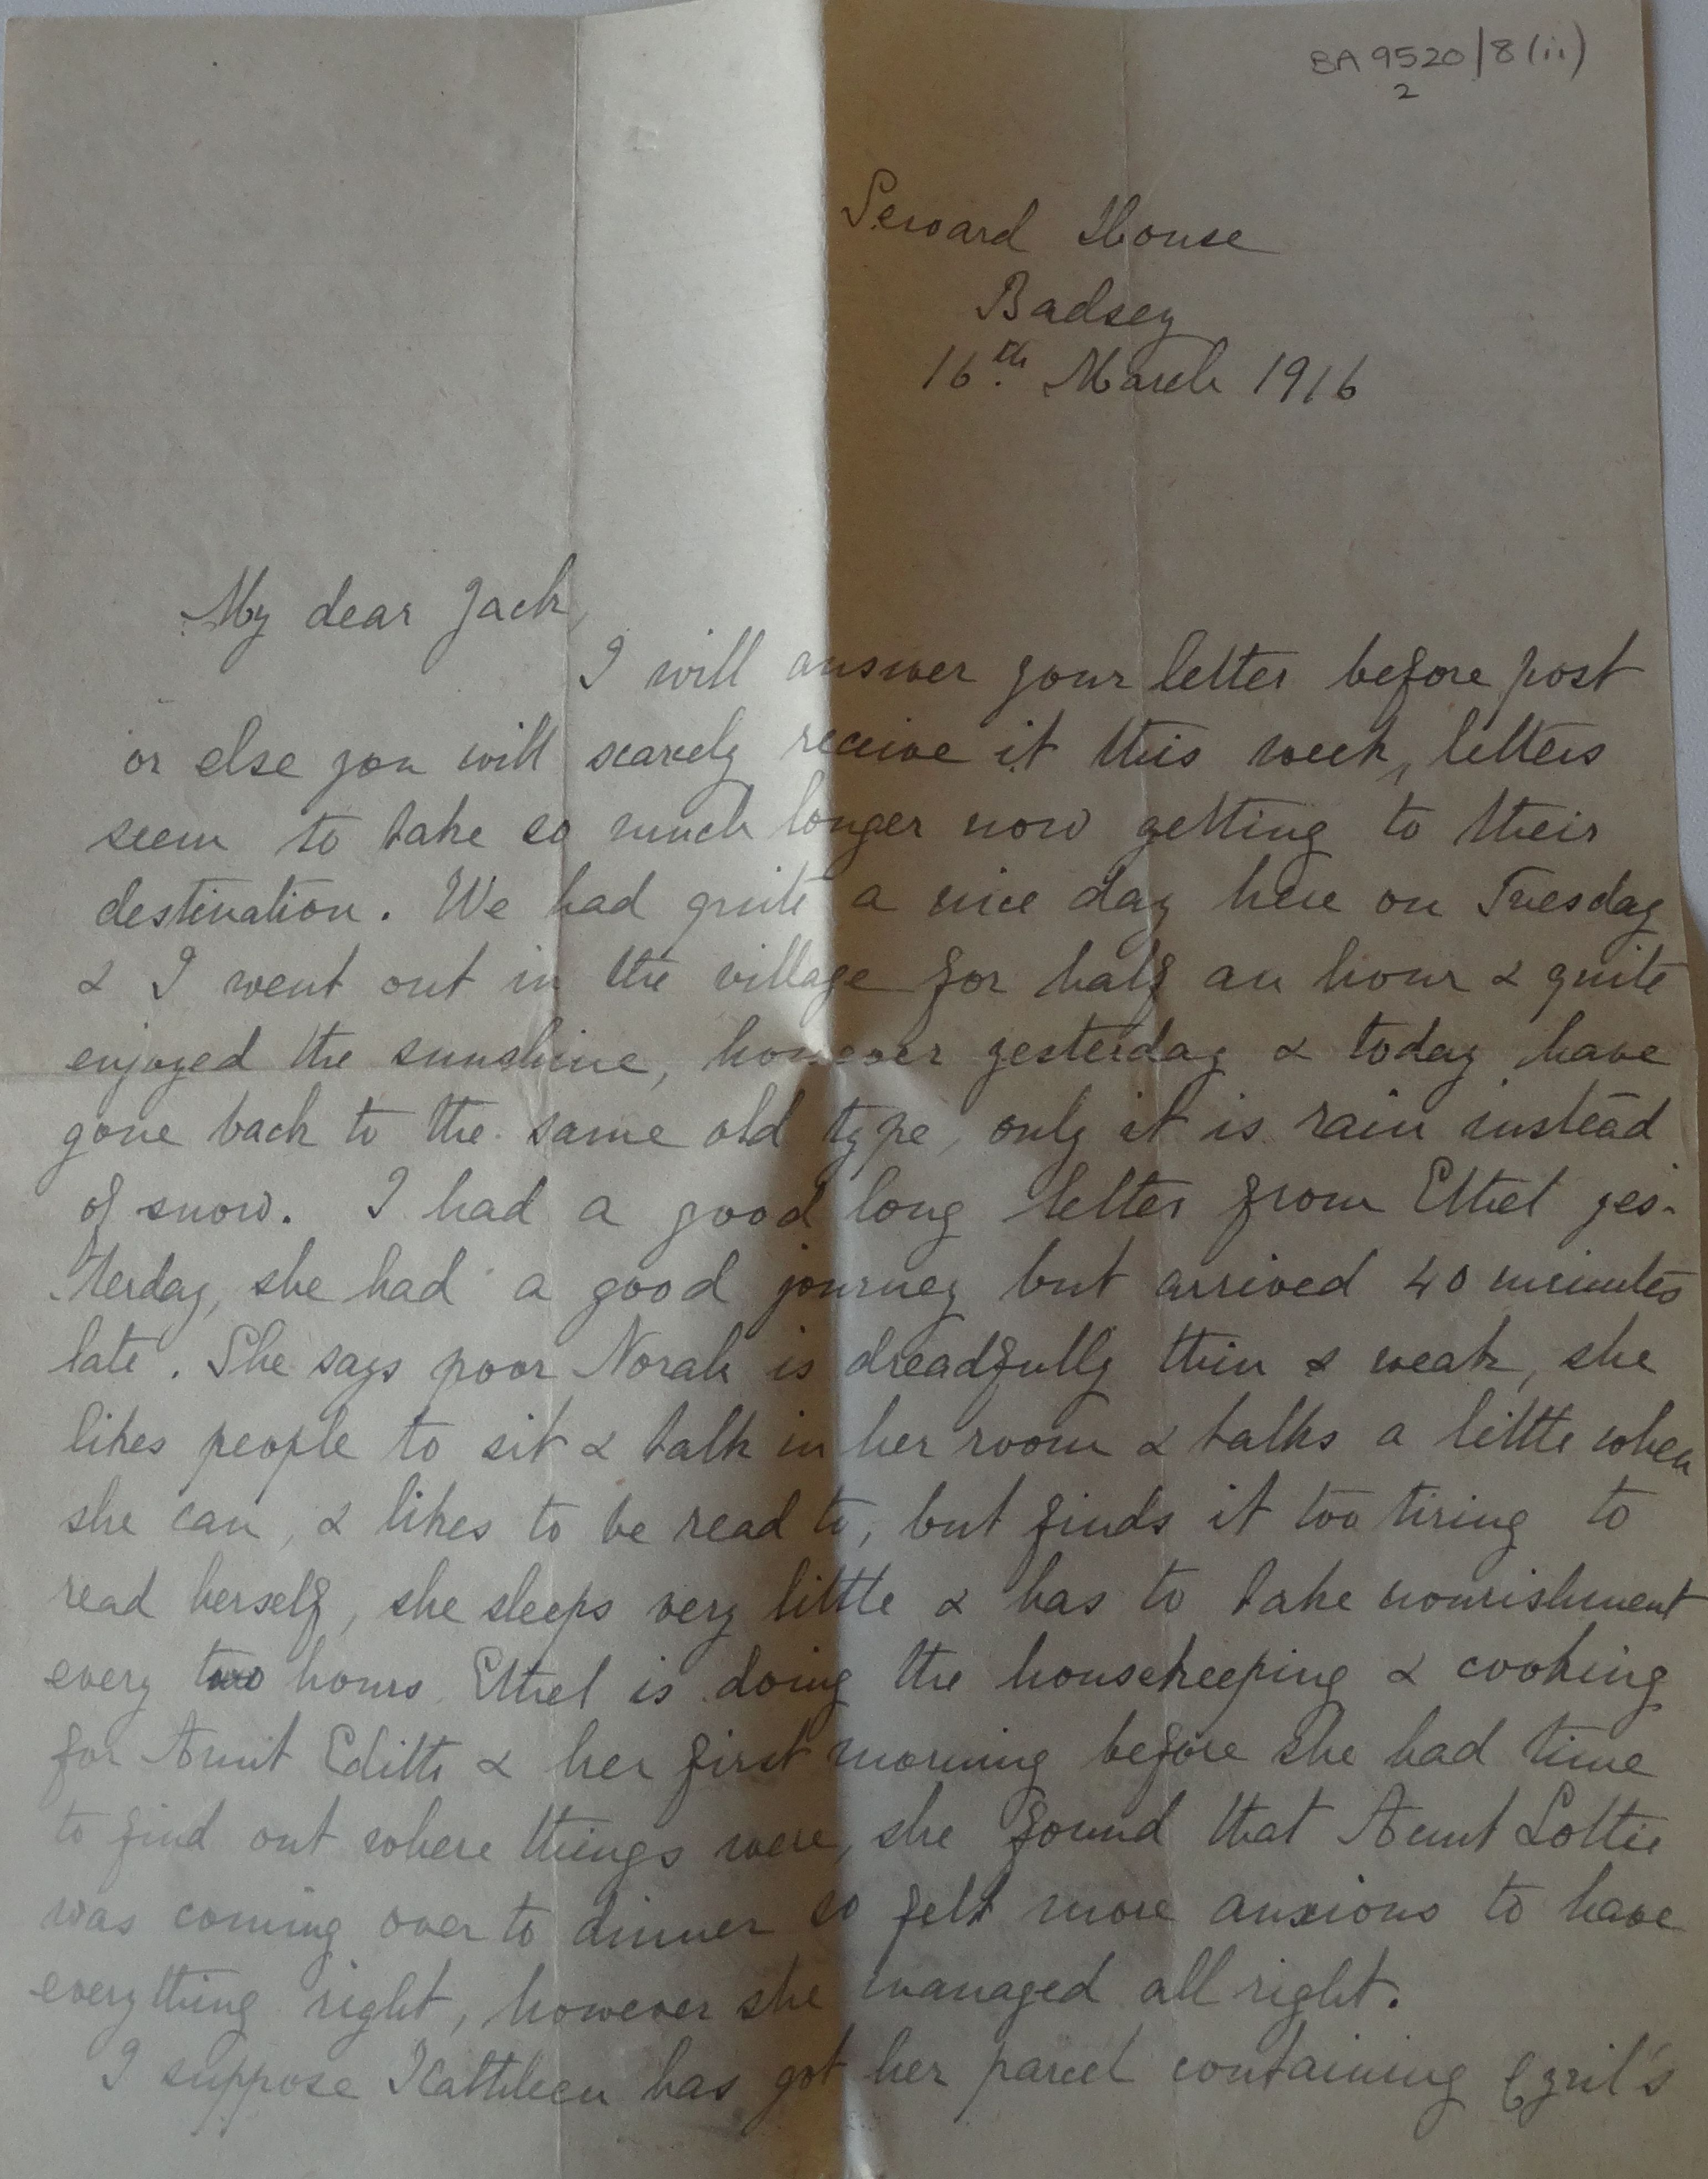 BA 9520/8(ii)
2
Seward House
Badsey
16th. March 1916
My dear Jack,
I will answer your letter before post
or else you will scarcely receive it this week, letters
seem to take so much longer now getting to their
destination. We had quite a nice day here on Tuesday
& I went out in the village for half an hour & quite
enjoyed the sunshine, however yesterday & today have
gone back to the same old type, only it is rain instead
of snow. I had a good long letter from Ethel yes-
terday, she had a good journey but arrived 40 minutes
late. She says poor Norah is dreadfully thin & weak, she
likes people to sit & talk in her room & talks a little when
she can, & likes to be read to, but finds it too tiring to
read herself, she sleeps very little & has to take nourishment
every two hours. Ethel is doing the housekeeping & cooking
for Aunt Edith & her first morning before she had time
to find out where things were, she found that Aunt Lottie
was coming over to dinner so felt more anxious to have
everything right, however she managed all right.
I suppose Kathleen has got her parcel containing Cyril's